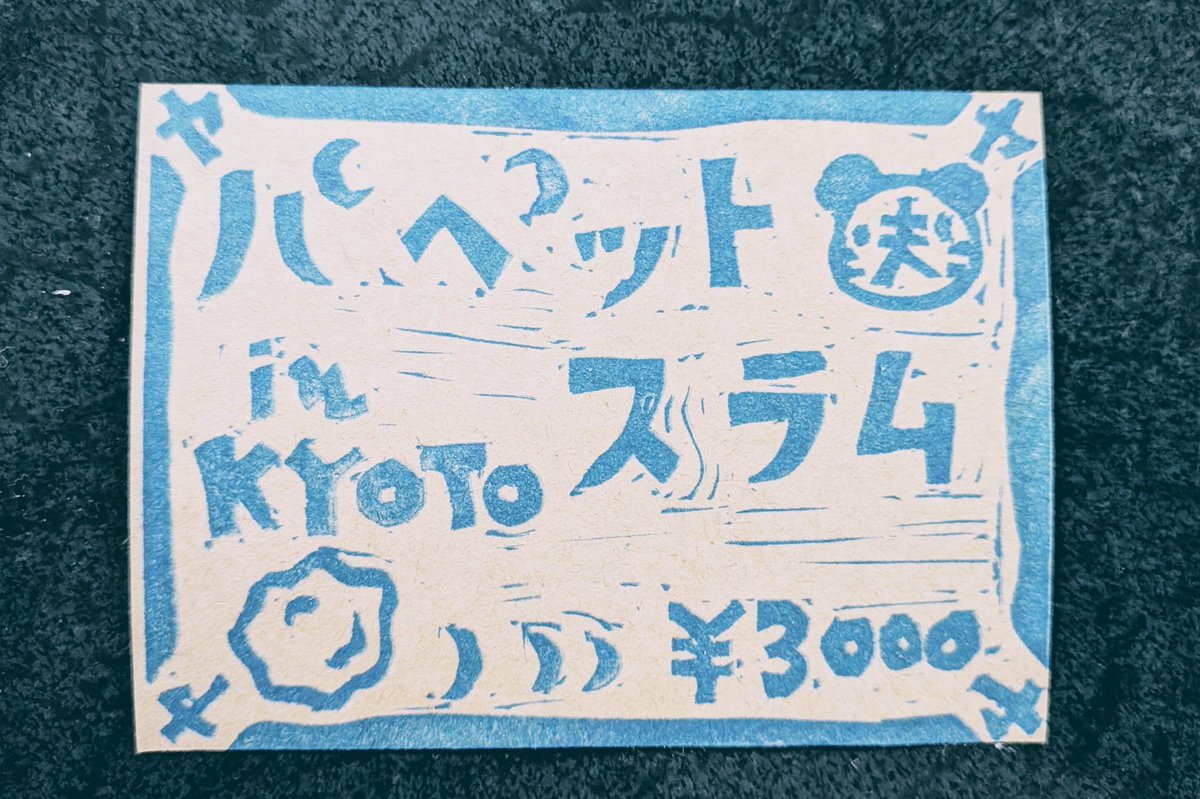 パペット
in スラム
KYOTO
¥3000